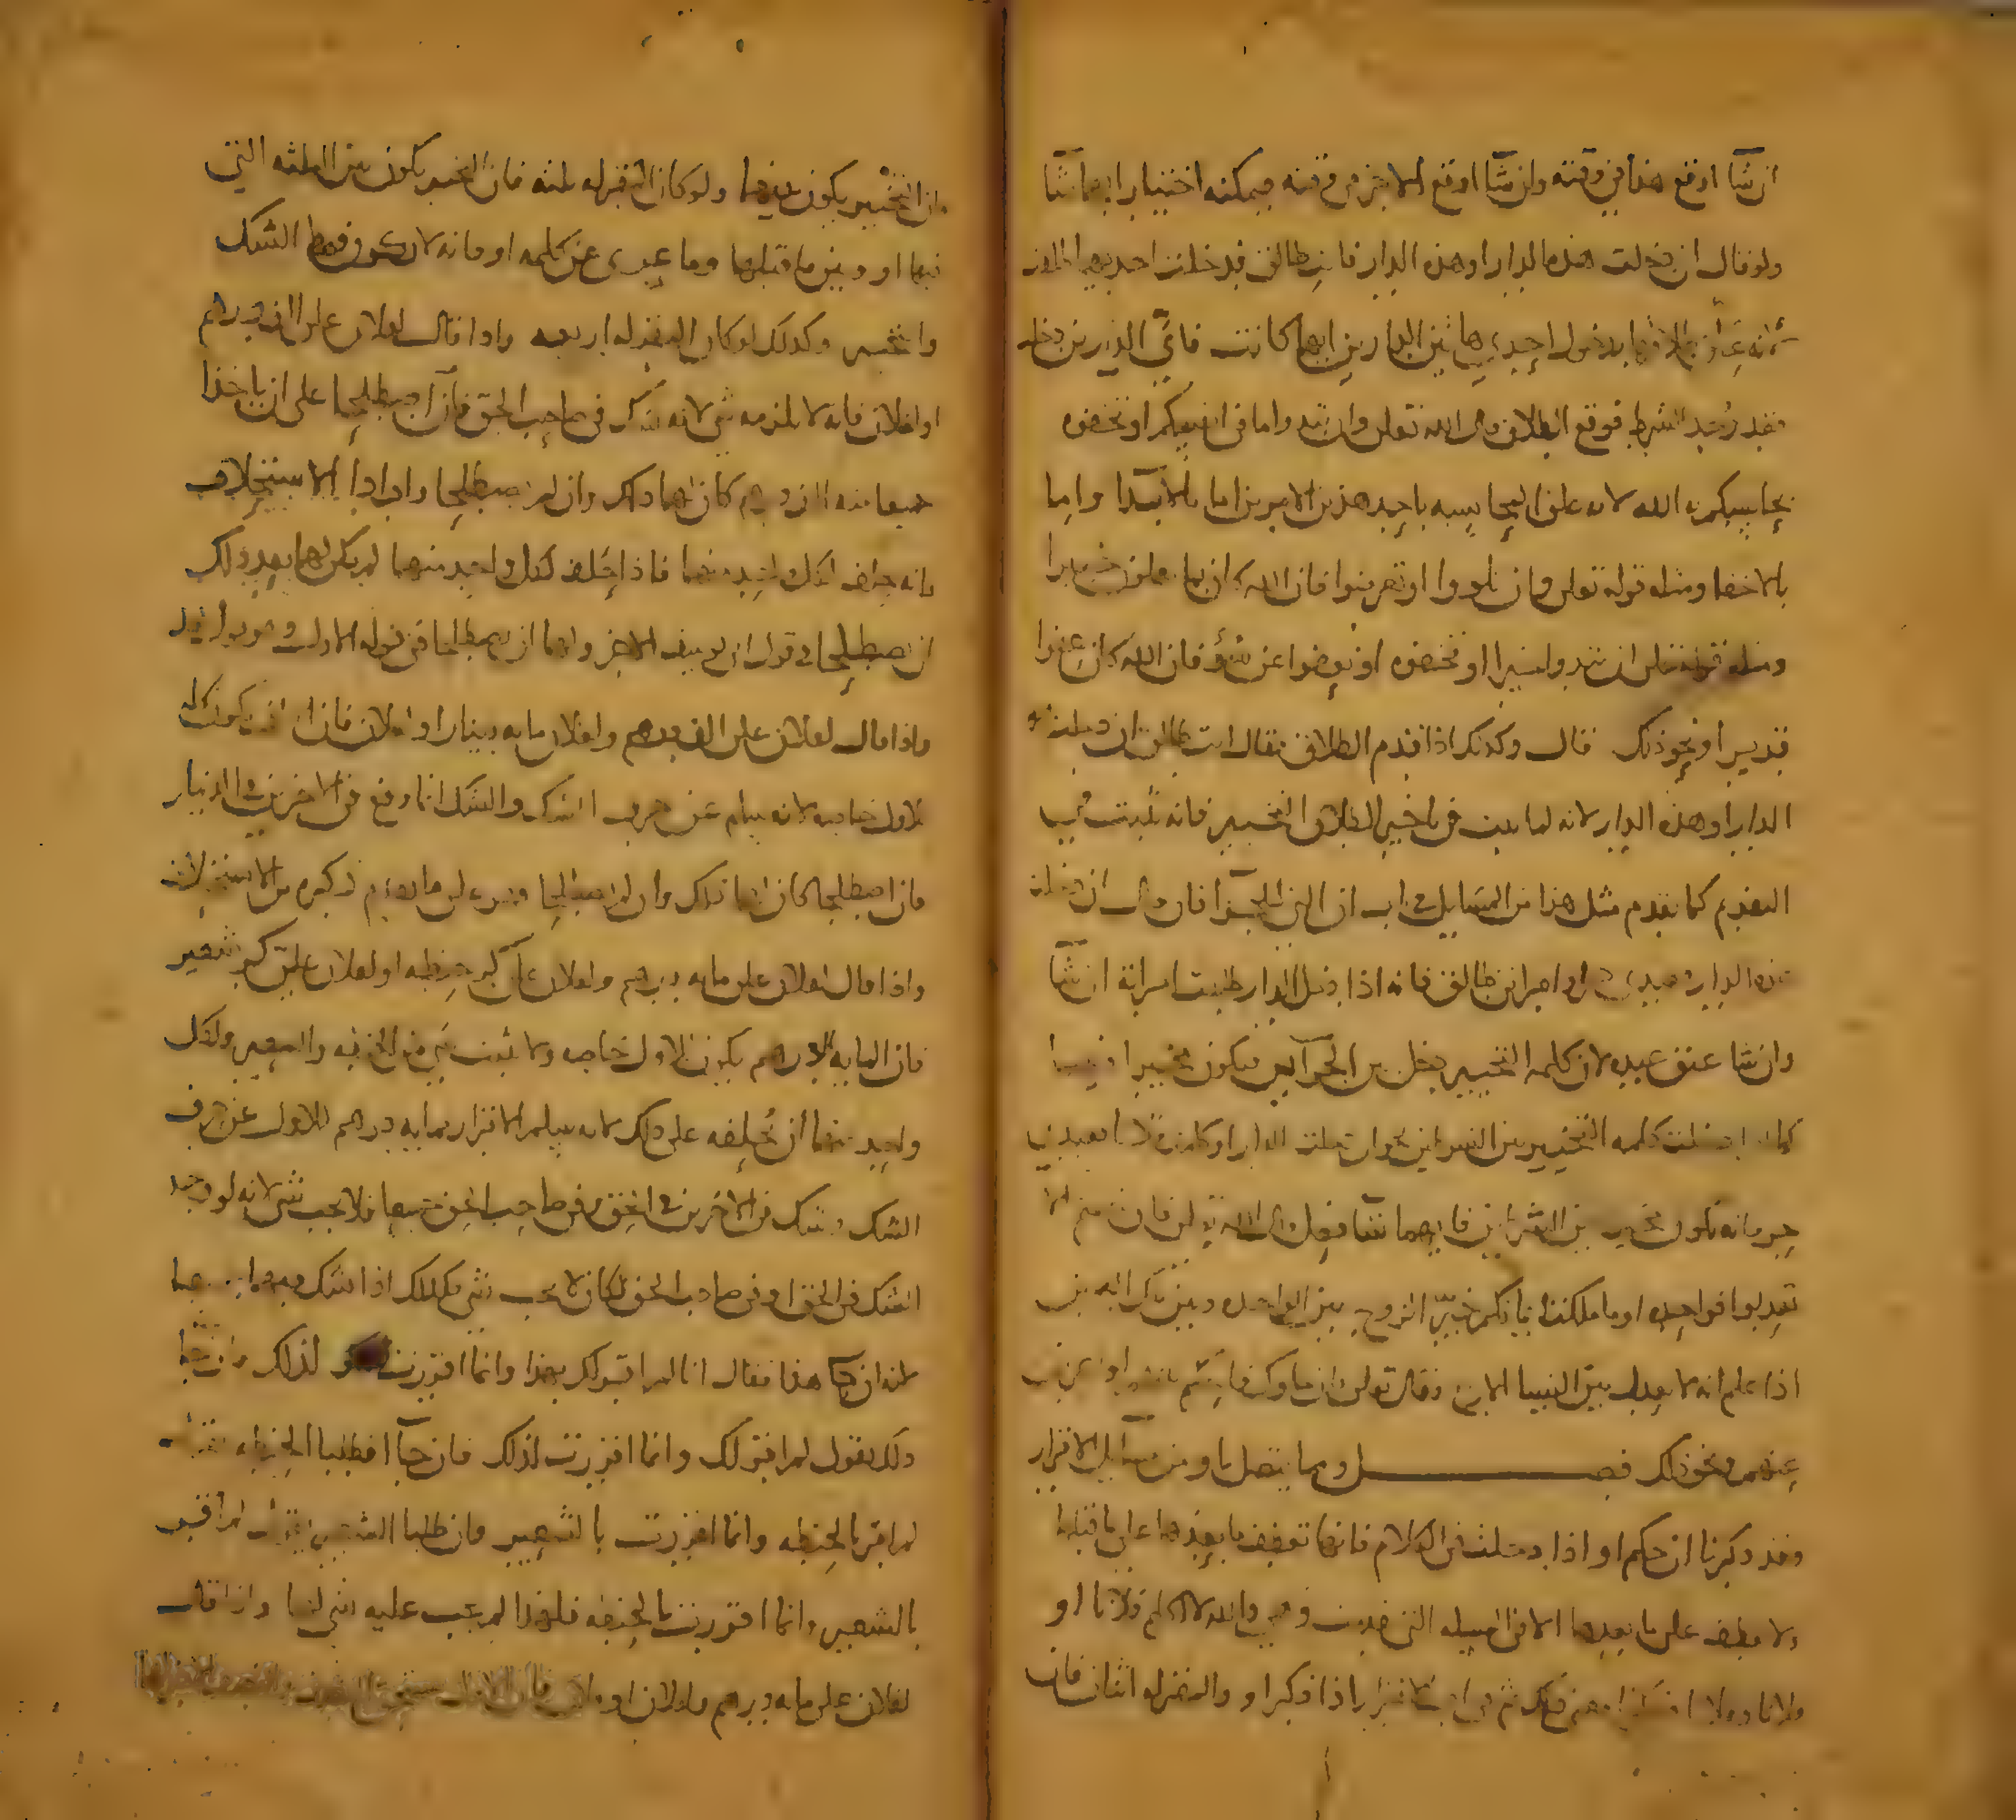 ان شآ اوقع هذا في وقته وان شآ اوقع الاخر في وقته فيمكنه اختيار ايهما شآ
ولو قال ان دخلت هذه الدار او هذه الدار فانت طالق فدخلت احديهما طلقت
لانه علق طلاقها بدخول احدى هاتين الدارين ايهما كانت فاي الدارين دخلت
فقد وجد الشرط فوقع الطلاق قال الله تعلى وان تبدوا ما في انفسكم او تخفوه
يحاسبكم به الله لانه علق المحاسبه باحد هذين الامرين اما بالابدا واما
بالاخفا ومثله قوله تعلى وان تلووا او تعرضوا فان الله كان بما تعملون خبيرا
ومثله قوله تعلى ان تبدوا خيرا او تخفوه او تعفوا عن سوء فان الله كان عفوا
قديرا ونحو ذلك قال وكذلك اذا قدم الطلاق فقال انت طالق ان دخلت هذه
الدار او هذه الدار لانه لما ثبت في تاخير الطلاق التخيير فانه يثبت في
التقديم كما تقدم مثل هذا من المسايل في باب ان التي للجزآ فان قال ان دخلت
هذه الدار فعبدي حر او امراتي طالق فانه اذا دخل الدار طلقت امراته ان شآ
وان شا عتق عبده لان كلمه التخيير دخل بين الجزآين فيكون مخيرا فيهما
كما اذا دخلت كلمه التخيير بين الشرطين نحو ان دخلت الدار او كلمت فلانا فعبدي
حر فانه يكون مخير بين الشرطين فايهما شآ فعل قال الله تعلى فان خفتم الا
تعدلوا فواحده او ما ملكت ايمانكم خير الزوج بين الواحده وبين ملك اليمين
اذا علم انه لا يعدل بين النسا الاربع وقال تعلى فان جاوك فاحكم بينهم او اعرض
عنهم ونحو ذلك فصــــل ومما يتصل باو من مسآيل الاقرار
وقد ذكرنا ان حكم او اذا دخلت في الكلام فانها تعطف ما بعدها على ما قبلها
ولا يعطف على ما بعدها الا في المسله التي مضت وهي والله لا اكلم فلانا او
اذا ذكر او والمقر له اثنان فان
وان التخيير يكون بينهما ولو كان المقر له ثلثه فان التخيير يكون بين الثلثه التي
فيها او وبين ما قبلها وما عري عن كلمه او فانه لا يكون فيه الشك
والتخيير وكذلك لو كان المقر له اربعه واذا قال لفلان علي الف درهم
او لفلان فانه لا يلزمه شي لانه شك في صاحب الحق فان اصطلحا على ان ياخذا
جميعا منه الف درهم كان لهما ذلك وان لم يصطلحا وارادا الاستحلاف
فانه يحلف لكل واحد منهما فاذا حلف لكل واحد منهما لم يكن لهما بعد ذلك
ان يصطلحا في قول ابي يوسف الاخر ولهما ان يصطلحا في قوله الاول وهو قول محمد
واذا قال لفلان علي الف درهم ولفلان مايه دينار او لفلان فان الالف يكون كله
للاول خاصه لانه سلم عن حرف الشك والشك انما وقع في الاخرين في الدنيار
فان اصطلحا كان لهما ذلك وان لم يصطلحا فهو على ما تقدم ذكره من الاستحلاف
واذا قال لفلان علي مايه درهم ولفلان علي كر حنطه او لفلان علي كر شعير
فان المايه الدرهم يكون للاول خاصه ولا يثبت شي من الحنطه والشعير ولكل
واحد منهما ان يحلفه على ذلك لانه سلم الاقرار بمايه درهم للاول عن حرف
الشك وشك في الاخرين في الحق وفي صاحب الحق جميعا فلا يجب شي لانه لو وجد
الشك في الحق او في صاحب الحق لكان لا يجب شي فكذلك اذا شك فيهما جميعا
لانه ان جآ هذا فقال انا لم اقر لك بهذا وانما اقررت لذلك وان جآ
ذلك يقول لم اقر لك وانما اقررت لذلك فان جآا فطلبا الحنطه يقول
لم اقر بالحنطه وانما اقررت بالشعير وان طلبا الشعير يقول لم اقر
بالشعير وانما اقررت بالحنطه فلهذا لم يجب عليه شي لهما واذا قال
لفلان علي مايه درهم ولفلان او لفلان فان الاول